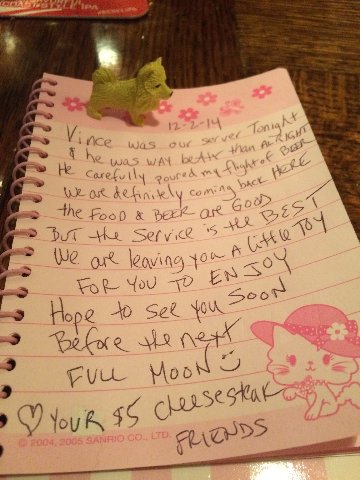 12-2-14
Vince was our server Tonight
& he was WAY beAtr than ALRIGHT
He carefully poured my flight of BEER
We are definitely coming back HERE
the FOOD & BEER are GOOD
BUT the Service is the BEST
We are leaving you A little TOY
FOR YOU TO ENJOY
Hope to see you SOON
Before the next
FULL MOON
YOUR $5 cheesesteak
FRIENDS
© 2004, 2005 SANRIO CO., LTD.